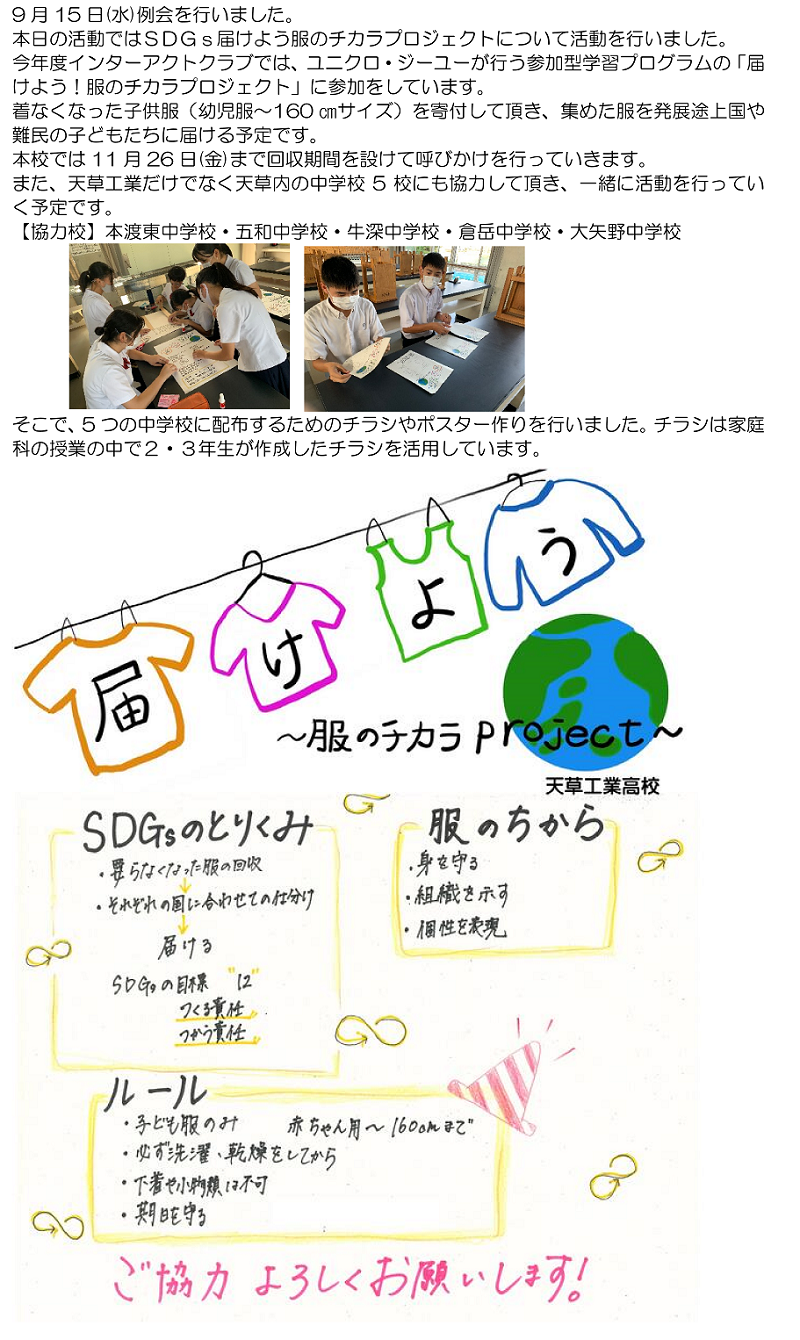 9月15日(水)例会を行いました。
本日の活動ではＳＤＧｓ届けよう服のチカラプロジェクトについて活動を行いました。
今年度インターアクトクラブでは、ユニクロ・ジーユーが行う参加型学習プログラムの「届
けよう！服のチカラプロジェクト」に参加をしています。
着なくなった子供服（幼児服～160㎝サイズ）を寄付して頂き、集めた服を発展途上国や
難民の子どもたちに届ける予定です。
本校では11月26日(金)まで回収期間を設けて呼びかけを行っていきます。
また、天草工業だけでなく天草内の中学校5校にも協力して頂き、一緒に活動を行ってい
く予定です。
【協力校】本渡東中学校・五和中学校・牛深中学校・倉岳中学校・大矢野中学校
そこで、５つの中学校に配布するためのチラシやポスター作りを行いました。チラシは家庭
科の授業の中で２・３年生が作成したチラシを活用しています。
届けよう
～服のチカラproject～
天草工業高校
SDGsのとりくみ
・要らなくなった服の回収
・それぞれの国に合わせての仕分け
届ける
SDGsの目標 "12"
つくる責任
つかう責任
服のちから
・身を守る
・組織を示す
・個性を表現
ルール
・子ども服のみ 赤ちゃん用～160cmまで
・必ず洗濯、乾燥をしてから
・下着や小物類は不可
・期日を守る
ご協力 よろしくお願いします!